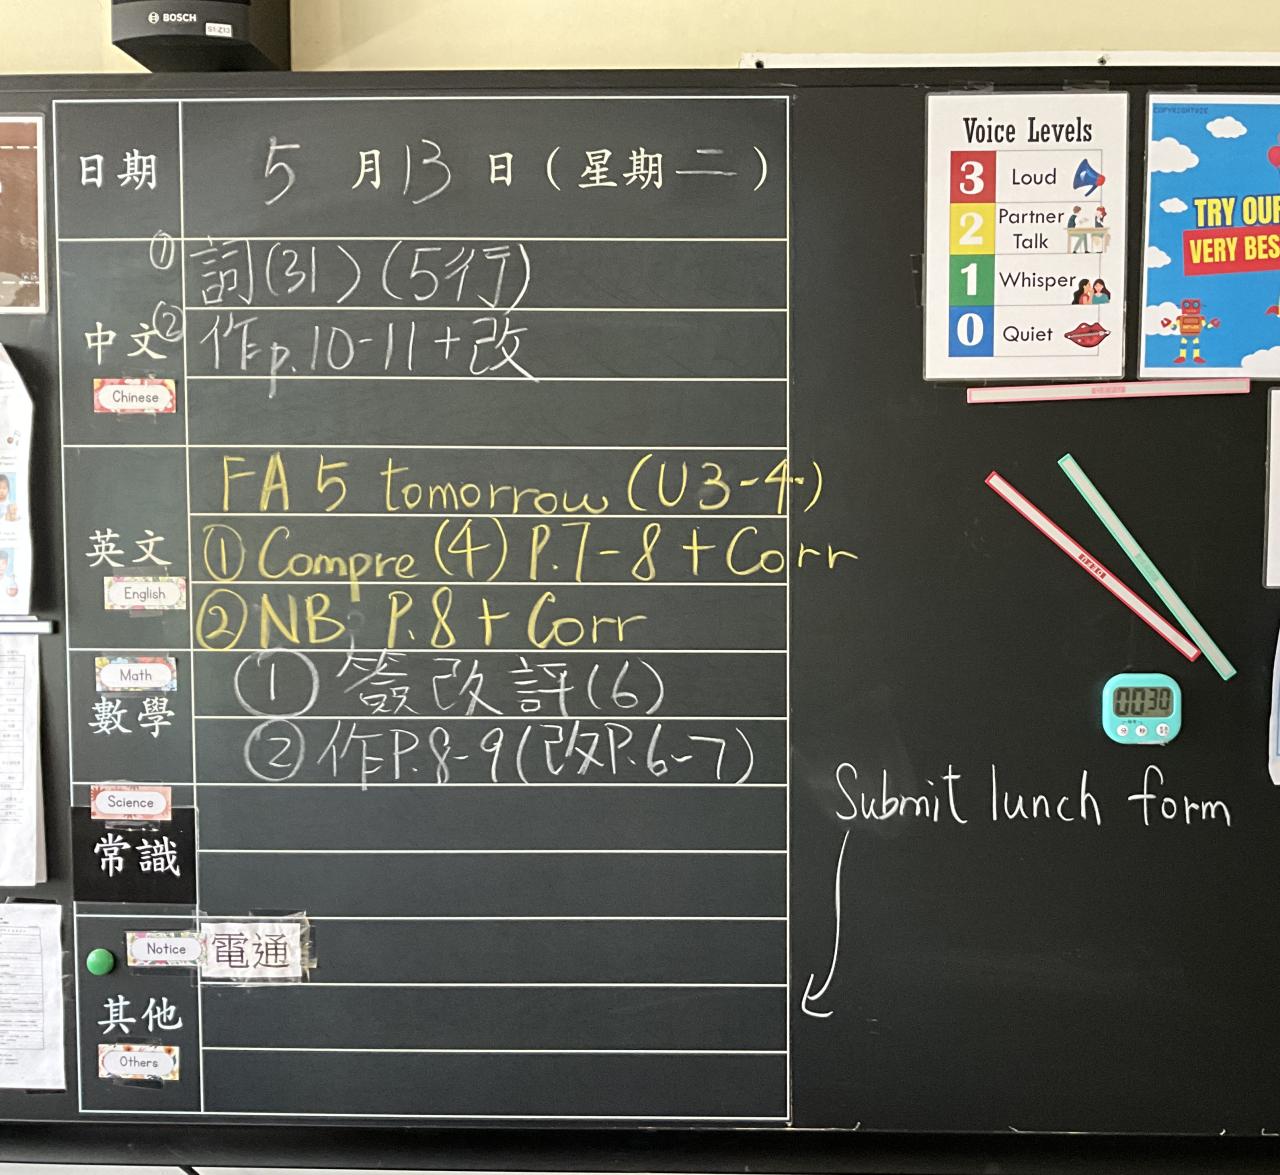 BOSCH
S1-Z13
日期 5 月 13 日 ( 星期 二 )
① 詞(31) (5行)
中文 ② 作p.10-11+改
Chinese
FA 5 tomorrow (U3-4)
英文 ① Compre (4) P.7-8 + Corr
English
② NB P.8 + Corr
Math
① 簽改評(6)
數學
② 作P.8-9(改P.6-7)
Science
常識
Notice 電通
其他
Others
Voice Levels
3 Loud
2 Partner Talk
1 Whisper
0 Quiet
TRY OUR
VERY BES
00 30
Submit lunch form